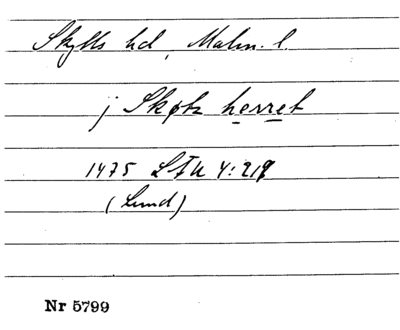 Skytts hd, Malm. l.
j Skøtz herret
1475 LÄU 4:218
(Lund)
Nr 5799